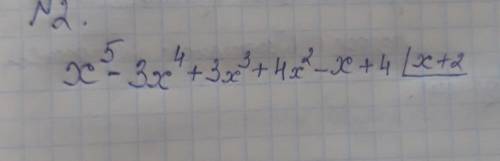 №2.
x⁵ - 3x⁴ + 3x³ + 4x² - x + 4 | x + 2